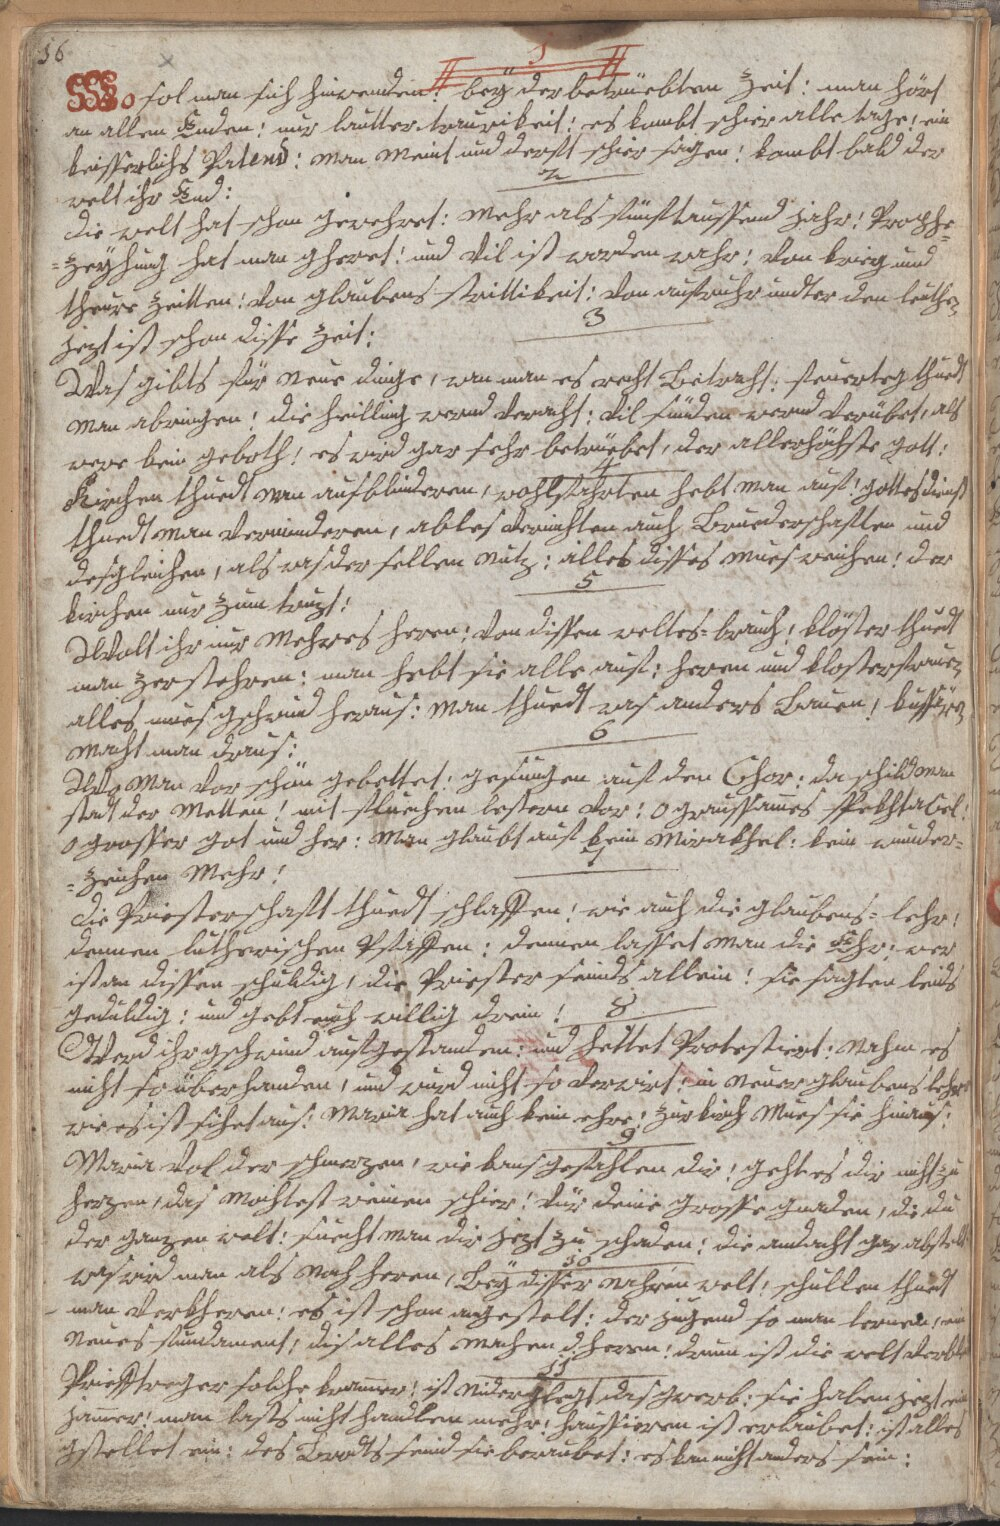 36
1
Wo sol man sich hinwenden! beÿ der betrüebten Zeit: man hört
an allem Enden! nur lautter traurikeit! es kombt schier alle tage! ein
keisserlichs Patend: man meint und derft schier sagen! kombt bald der
welt ihr End:
2
die welt hat schon gewehret: mehr als fünftaussend jahr! Prophe=
=Zeÿhung hat man gheret! und vil ist worden wahr! von krieg und
theure Zeitten! von glaubens strittikeit: von aufruhr undter den leüthen
jezt ist schon disse Zeit:
3
Was gibts für Neue dinge, wan man es recht Betracht: feuerteg thuedt
man abringen! die heilling wernd veracht: vil sünden wernd verübet, als
were kein geboth! es wird gar sehr betrüebet, der allerhöchste gott:
4
Kirchen thuedt man aufblinderen, wohlfahrten hebt man auf! gottesdienst
thuedt man verminderen, ables verrichten auch Bruederschafften und
desgleichen, als was der sellen Nutz: alles disses mues weichen! der
kirchen nur zum truzt!
5
Wolt ihr nur Mehres heren: von dissen weltes=brauch! klöster thuedt
man zerstehren: man hebt sie alle auf: heren und klosterfrauen
alles mues gschwind heraus: man thuedt was anders Bauen!
macht man draus:
6
Wo man vor schön gebettet: gesungen auf den Chor: da schild man
stad der Metten! mit fluechen lestern vor! o graussames spekhtacel!
o grosser got und her: Man glaubt auf kein Mirakhel: kein wunder=
=zeichen Mehr!
7
die Priesterschaft thuedt schlaffen! wie auch die glaubens=lehr!
dennen lutherischen Pfaffen: dennen lasset man die Ehr: wer
ist an dissen schuldig, die Priester seinds allein! sie sagten leids
geduldig: und gebt euch willig drein!
8
Werd ihr gschwind aufgestanden: und hettet Protestiert: Nahm es
nicht so überhanden, und wurd nicht so verwirt: in Neuer glaubens lehre
wie es ist sihet aus: Maria hat auch kein ehre: zur kirch Mues sie hinaus:
9
Maria vol der schmerzen, wie kans gefahlen dir! geht es dir nicht zu
herzen, das mochtest weinen schier! vür deine grosse gnaden, die du
der ganzen welt: suecht man dir jezt zu schaden! die andacht gar abstelt
10
was wird man als Noch heren, Beÿ disser welt! schullen thuedt
man verkheren! es ist schon angestelt: der Jugend so man lernen, ein
Neues fundament, dis alles machen d. herren! drum ist die welt
11
Briefftreger solche kramer! ist Nider glegt das gwerb: sie haben jezt ein
jamer! man lasts nicht handlen mehr! haussieren ist erlaubet: ist alles
gstellet ein: des Brodts seind sie beraubet: es kan nicht anders sein: